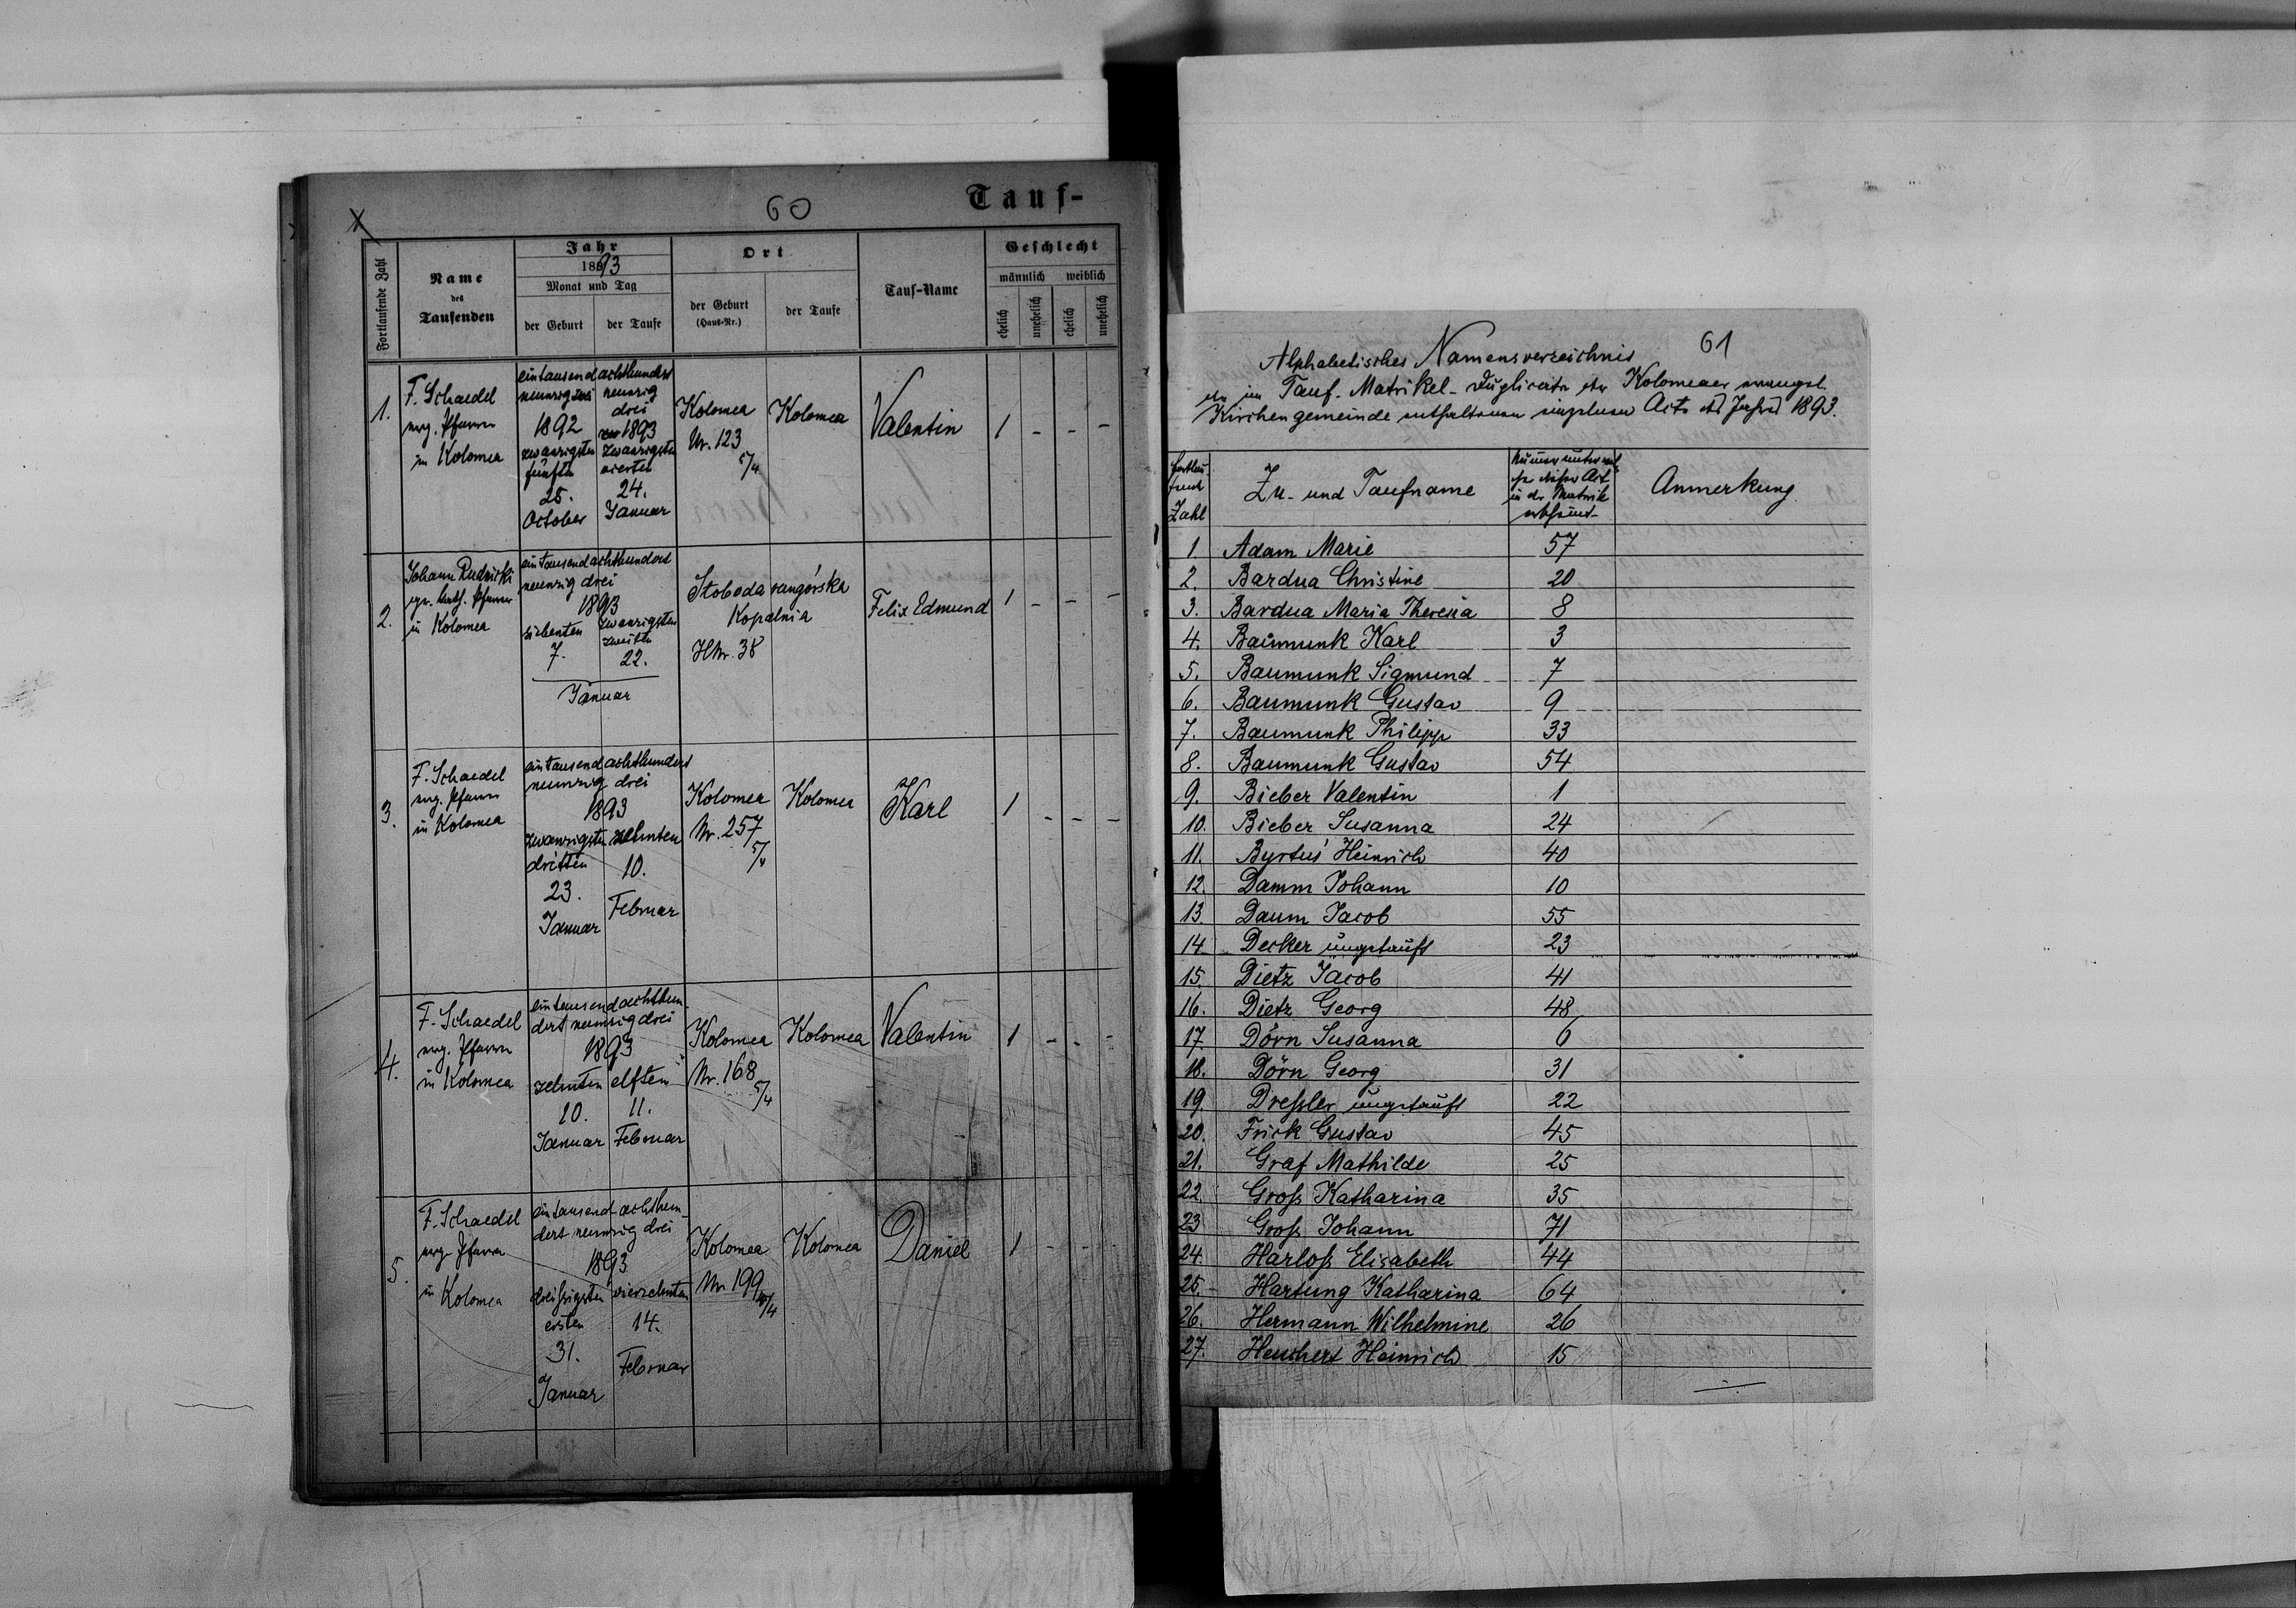 60
Tauf-
Fortlaufende Zahl
Name
des
Taufenden
Jahr
1893
Monat und Tag
der Geburt
der Taufe
Ort
der Geburt
(Haus-Nr.)
der Taufe
Tauf-Name
Geschlecht
männlich
weiblich
ehelich
unehelich
ehelich
unehelich
1.
F. Schaedel
evg. Pfarrer
in Kolomea
eintausend achthundert
neunzig
neunzig
drei
1892
1893
zwanzigsten
fünften
25.
October
zwanzigsten
vierten
24.
Januar
Kolomea
Nr. 123
5/4
Kolomea
Valentin
1 - - -
2.
Johann Rudnicki
gr. kath. Pfarrer
in Kolomea
eintausend achthundert
neunzig drei
1893
siebenten
7.
zwanzigsten
zweiten
22.
Januar
Słoboda rangórska
Kopalnia
HNr. 38
Felix Edmund
1 - - -
3.
F. Schaedel
evg. Pfarrer
in Kolomea
eintausend achthundert
neunzig drei
1893
zwanzigsten
dritten
23.
Januar
zehnten
10.
Februar
Kolomea
Nr. 257
Kolomea
Karl
1 - - -
4.
F. Schaedel
evg. Pfarrer
in Kolomea
eintausend achthun-
dert neunzig drei
1893
zehnten
10.
Januar
elften
11.
Februar
Kolomea
Nr. 168
5/4
Kolomea
Valentin
1 - - -
5.
F. Schaedel
evg. Pfarrer
in Kolomea
eintausend achthun-
dert neunzig drei
1893
dreißigsten
ersten
31.
Januar
vierzehnten
14.
Februar
Kolomea
Nr 199
Kolomea
Daniel
1 - - -
61
Alphabetisches Namensverzeichnis
der im Tauf-Matrikel-Duplicate der Kolomeaer evangel.
Kirchengemeinde enthaltenen einzelnen Acte des Jahres 1893.
Fortlau-
fende
Zahl
Zu- und Taufname
Numer unter wel-
in der Matrik
Anmerkung
1. Adam Marie 57
2. Bardua Christine 20
3. Bardua Maria Theresia 8
4. Baumunk Karl 3
5. Baumunk Sigmund 7
6. Baumunk Gustav 9
7. Baumunk Philipp 33
8. Baumunk Gustav 54
9. Bieber Valentin 1
10. Bieber Susanna 24
11. Byrtus Heinrich 40
12. Damm Johann 10
13. Daum Jacob 55
14. Decker ungetauft 23
15. Dietz Jacob 41
16. Dietz Georg 48
17. Dörn Susanna 6
18. Dörn Georg 31
19. Dreßler ungetauft 22
20. Frick Gustav 45
21. Graf Mathilde 25
22. Groß Katharina 35
23 Groß Johann 71
24. Harloß Elisabeth 44
25. Hartung Katharina 64
26. Hermann Wilhelmine 26
27. Heuchert Heinrich 15